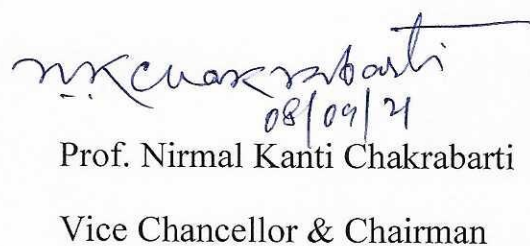 N.K Chakrabarti
08/09/21
Prof. Nirmal Kanti Chakrabarti
Vice Chancellor & Chairman